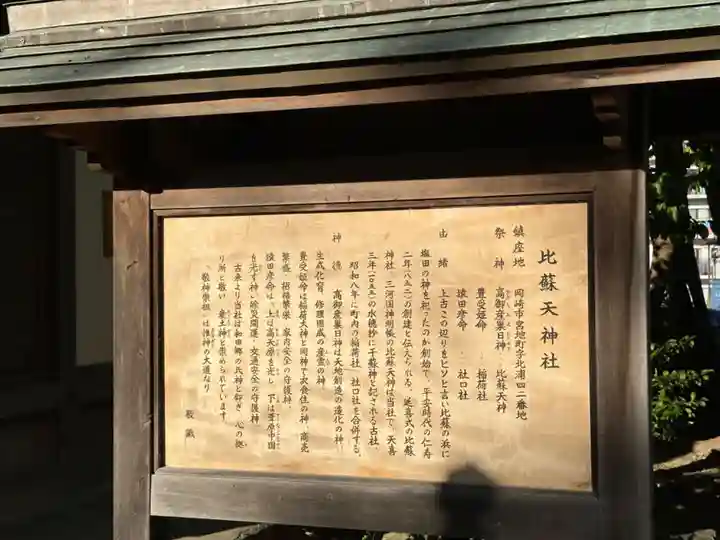 比蘇天神社
鎮座地 岡崎市宮地町字北浦四二番地
祭神 高御産巣日神 比蘇天神
豊受姫命 稲荷社
猿田彦命 社口社
由緒 上古この辺りをヒソと言い比蘇の浜に
塩田の神を祀ったのが創始で、平安時代の仁寿
二年(八五二)の創建と伝えられる。延喜式の比蘇
神社、三河国神州帳の比蘇天神は当社で、天喜
三年(一〇五五)の水穂抄に千蘇神と記される古社。
昭和八年に町内の稲荷社、社口社を合併する。
神徳 高御産巣日神は天地創造の造化の神
生成化育、修理固成の産霊の神
豊受姫命は稲荷大神と同神で衣食住の神、商売
繁盛・招福繁栄、家内安全の守護神、
猿田彦命は、上は高天原を光し、下は葦原中国
を光す神、除災開運・交通安全の守護神
古来より当社は和田郷の氏神と仰ぎ、心の拠
り所と敬い、産土神と崇められています。
「敬神崇祖」は惟神の大道なり
敬識